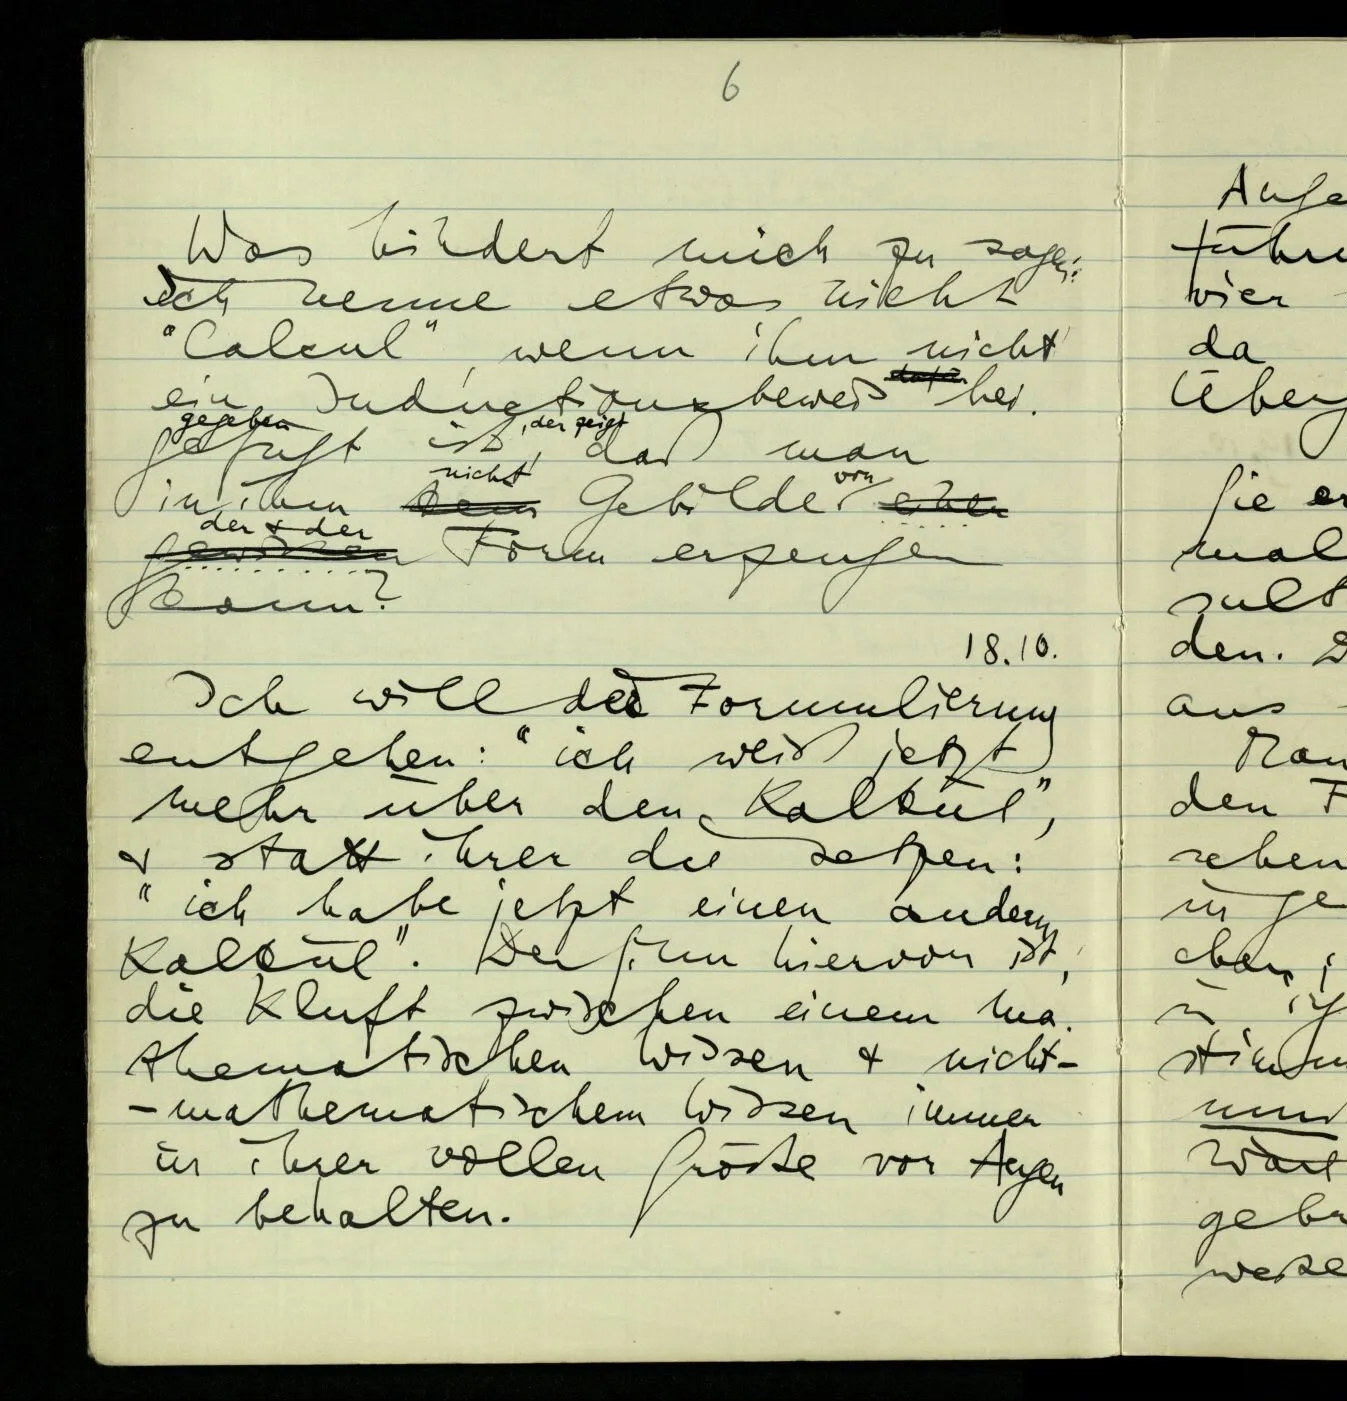 6
Was hindert mich zu sagen:
Ich nenne etwas nicht
"Calcul", wenn ihm nicht
ein Induktionsbeweis bei-
gegeben der zeigt
gefügt ist, daß man
nicht von
in ihm kein Gebilde einer
der & der
gewissen Form erzeugen
kann?
18.10.
Ich will der Formulierung
entgehen: "ich weiß jetzt
mehr über den Kalkül",
& statt ihrer die setzen:
"ich habe jetzt einen andern
Kalkül". Der Sinn hiervon ist,
die Kluft zwischen einem ma-
thematischen Wissen & nicht-
-mathematischem Wissen immer
in ihrer vollen Größe vor Augen
zu behalten.
führ
vier
da
Überg
Sie er
mal
sult
den. D
aus
Man
den F
sehen
in ge
chen;
stimm
und
Wort
gebr
weise